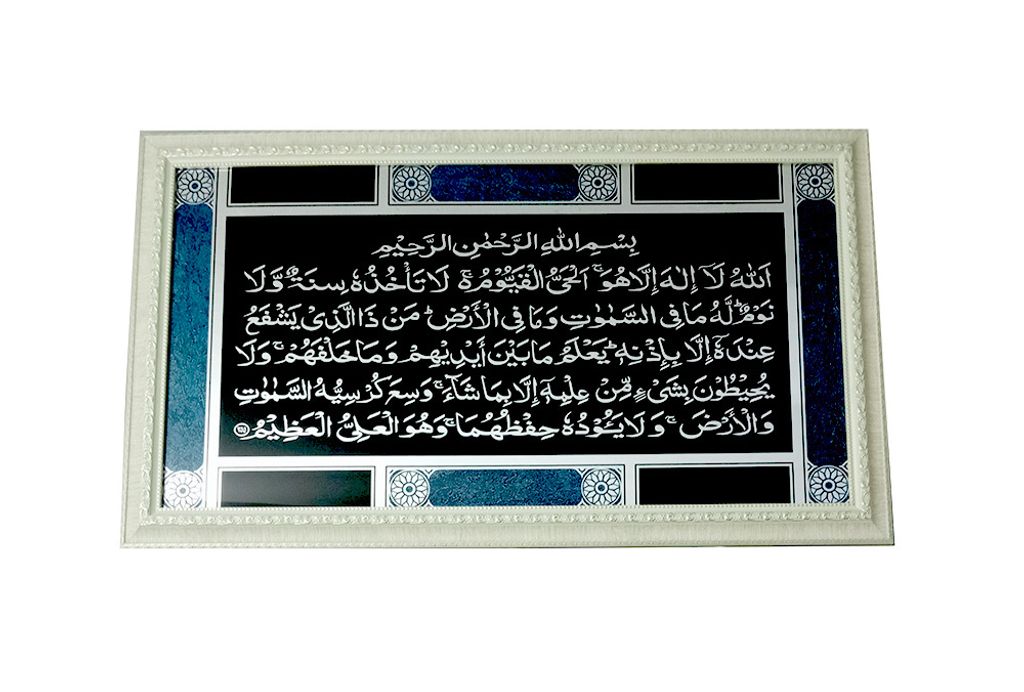 بِسْمِ اللهِ الرَّحْمٰنِ الرَّحِيْمِ
اَللهُ لَآ إِلٰهَ إِلَّا هُوَ ۚ اَلْحَيُّ الْقَيُّوْمُ ۚ لَا تَأْخُذُهٗ سِنَةٌ وَّلَا
نَوْمٌ ؕ لَّهٗ مَا فِي السَّمٰوٰتِ وَمَا فِي الْأَرْضِ ؕ مَنْ ذَا الَّذِيْ يَشْفَعُ
عِنْدَهٗ إِلَّا بِإِذْنِهٖ ؕ يَعْلَمُ مَا بَيْنَ أَيْدِيْهِمْ وَمَا خَلْفَهُمْ ۚ وَلَا
يُحِيْطُوْنَ بِشَيْءٍ مِّنْ عِلْمِهٖٓ إِلَّا بِمَا شَآءَ ۚ وَسِعَ كُرْسِيُّهُ السَّمٰوٰتِ
وَالْأَرْضَ ۚ وَلَا يَـُٔوْدُهٗ حِفْظُهُمَا ۚ وَهُوَ الْعَلِيُّ الْعَظِيْمُ